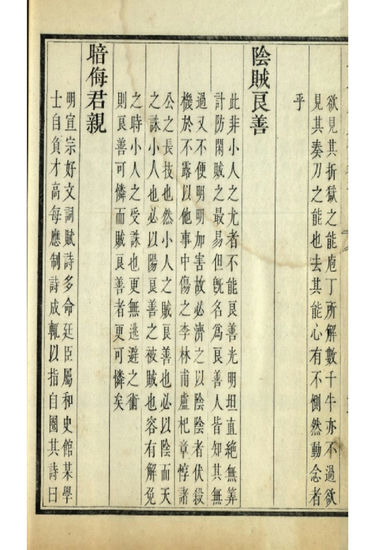 欲見其折獄之能庖丁所解數千牛亦不過欲
見其奏刀之能也去其能心有不惻然動念者
乎
陰賊良善
此非小人之尤者不能良善光明坦直絶無筭
計防閑賊之最易但旣名爲良善人皆知其無
過又不便明明加害故必濟之以陰陰者伏殺
機於不露以他事中傷之李林甫盧杞章惇諸
公之長技也然小人之賊良善也必以陰而天
之誅小人也必以陽良善之被賊也容有解免
之時小人之受誅也更無逃避之術
則良善可憐而賊良善者更可憐矣
暗侮君親
明宣宗好文詞賦詩多命廷臣屬和史館某學
士自負才高每應制詩成輒以指自圈其詩曰